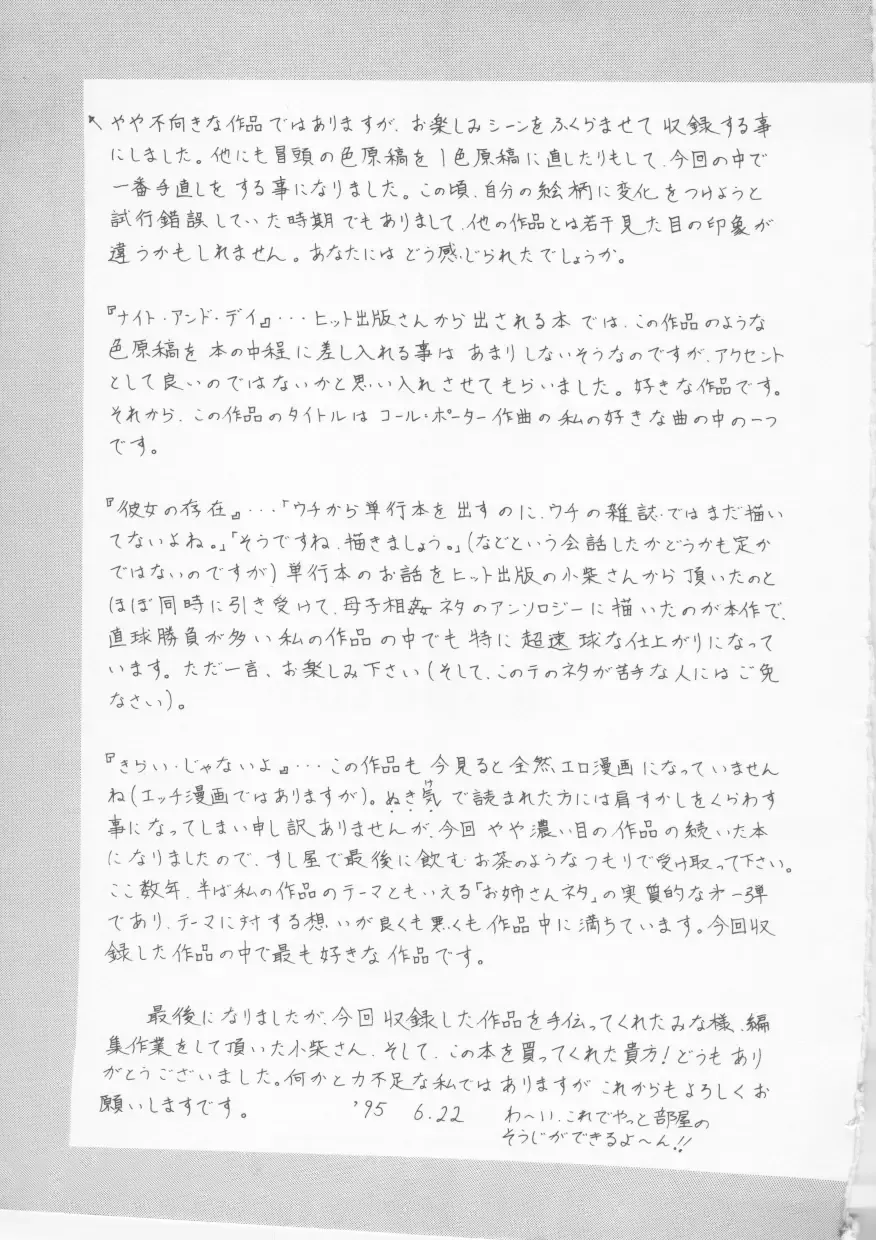 やや不向きな作品ではありますが、お楽しみシーンをふくらませて収録する事
にしました。他にも冒頭の色原稿を1色原稿に直したりもして、今回の中で
一番手直しをする事になりました。この頃、自分の絵柄に変化をつけようと
試行錯誤していた時期でもありまして、他の作品とは若干見た目の印象が
違うかもしれません。あなたにはどう感じられたでしょうか。
『ナイト・アンド・デイ』・・・ヒット出版さんから出される本では、この作品のような
色原稿を本の中程に差し入れる事はあまりしないそうなのですが、アクセント
として良いのではないかと思い入れさせてもらいました。好きな作品です。
それから、この作品のタイトルはコール=ポーター作曲の私の好きな曲の中の一つ
です。
『彼女の存在』・・・「ウチから単行本を出すのに、ウチの雑誌ではまだ描い
てないよね。」「そうですね、描きましょう。」(などという会話したかどうかも定か
ではないのですが)単行本のお話をヒット出版の小柴さんから頂いたのと
ほぼ同時に引き受けて、母子相姦ネタのアンソロジーに描いたのが本作で、
直球勝負が多い私の作品の中でも特に超速球な仕上がりになって
います。ただ一言、お楽しみ下さい(そして、このテのネタが苦手な人にはご免
なさい)。
『きらい・じゃないよ』・・・この作品も今見ると全然エロ漫画になっていません
ね(エッチ漫画ではありますが)。ぬき気で読まれた方には肩すかしをくらわす
事になってしまい申し訳ありませんが、今回やや濃い目の作品の続いた本
になりましたので、すし屋で最後に飲むお茶のようなつもりで受け取って下さい。
ここ数年、半ば私の作品のテーマともいえる「お姉さんネタ」の実質的な第一弾
であり、テーマに対する想いが良くも悪くも作品中に満ちています。今回収
録した作品の中で最も好きな作品です。
最後になりましたが、今回収録した作品を手伝ってくれたみな様、編
集作業をして頂いた小柴さん、そして、この本を買ってくれた貴方!どうもあり
がとうございました。何かと力不足な私ではありますがこれからもよろしくお
願いしますです。 '95 6.22
わ〜い、これでやっと部屋の
そうじができるよ〜ん!!